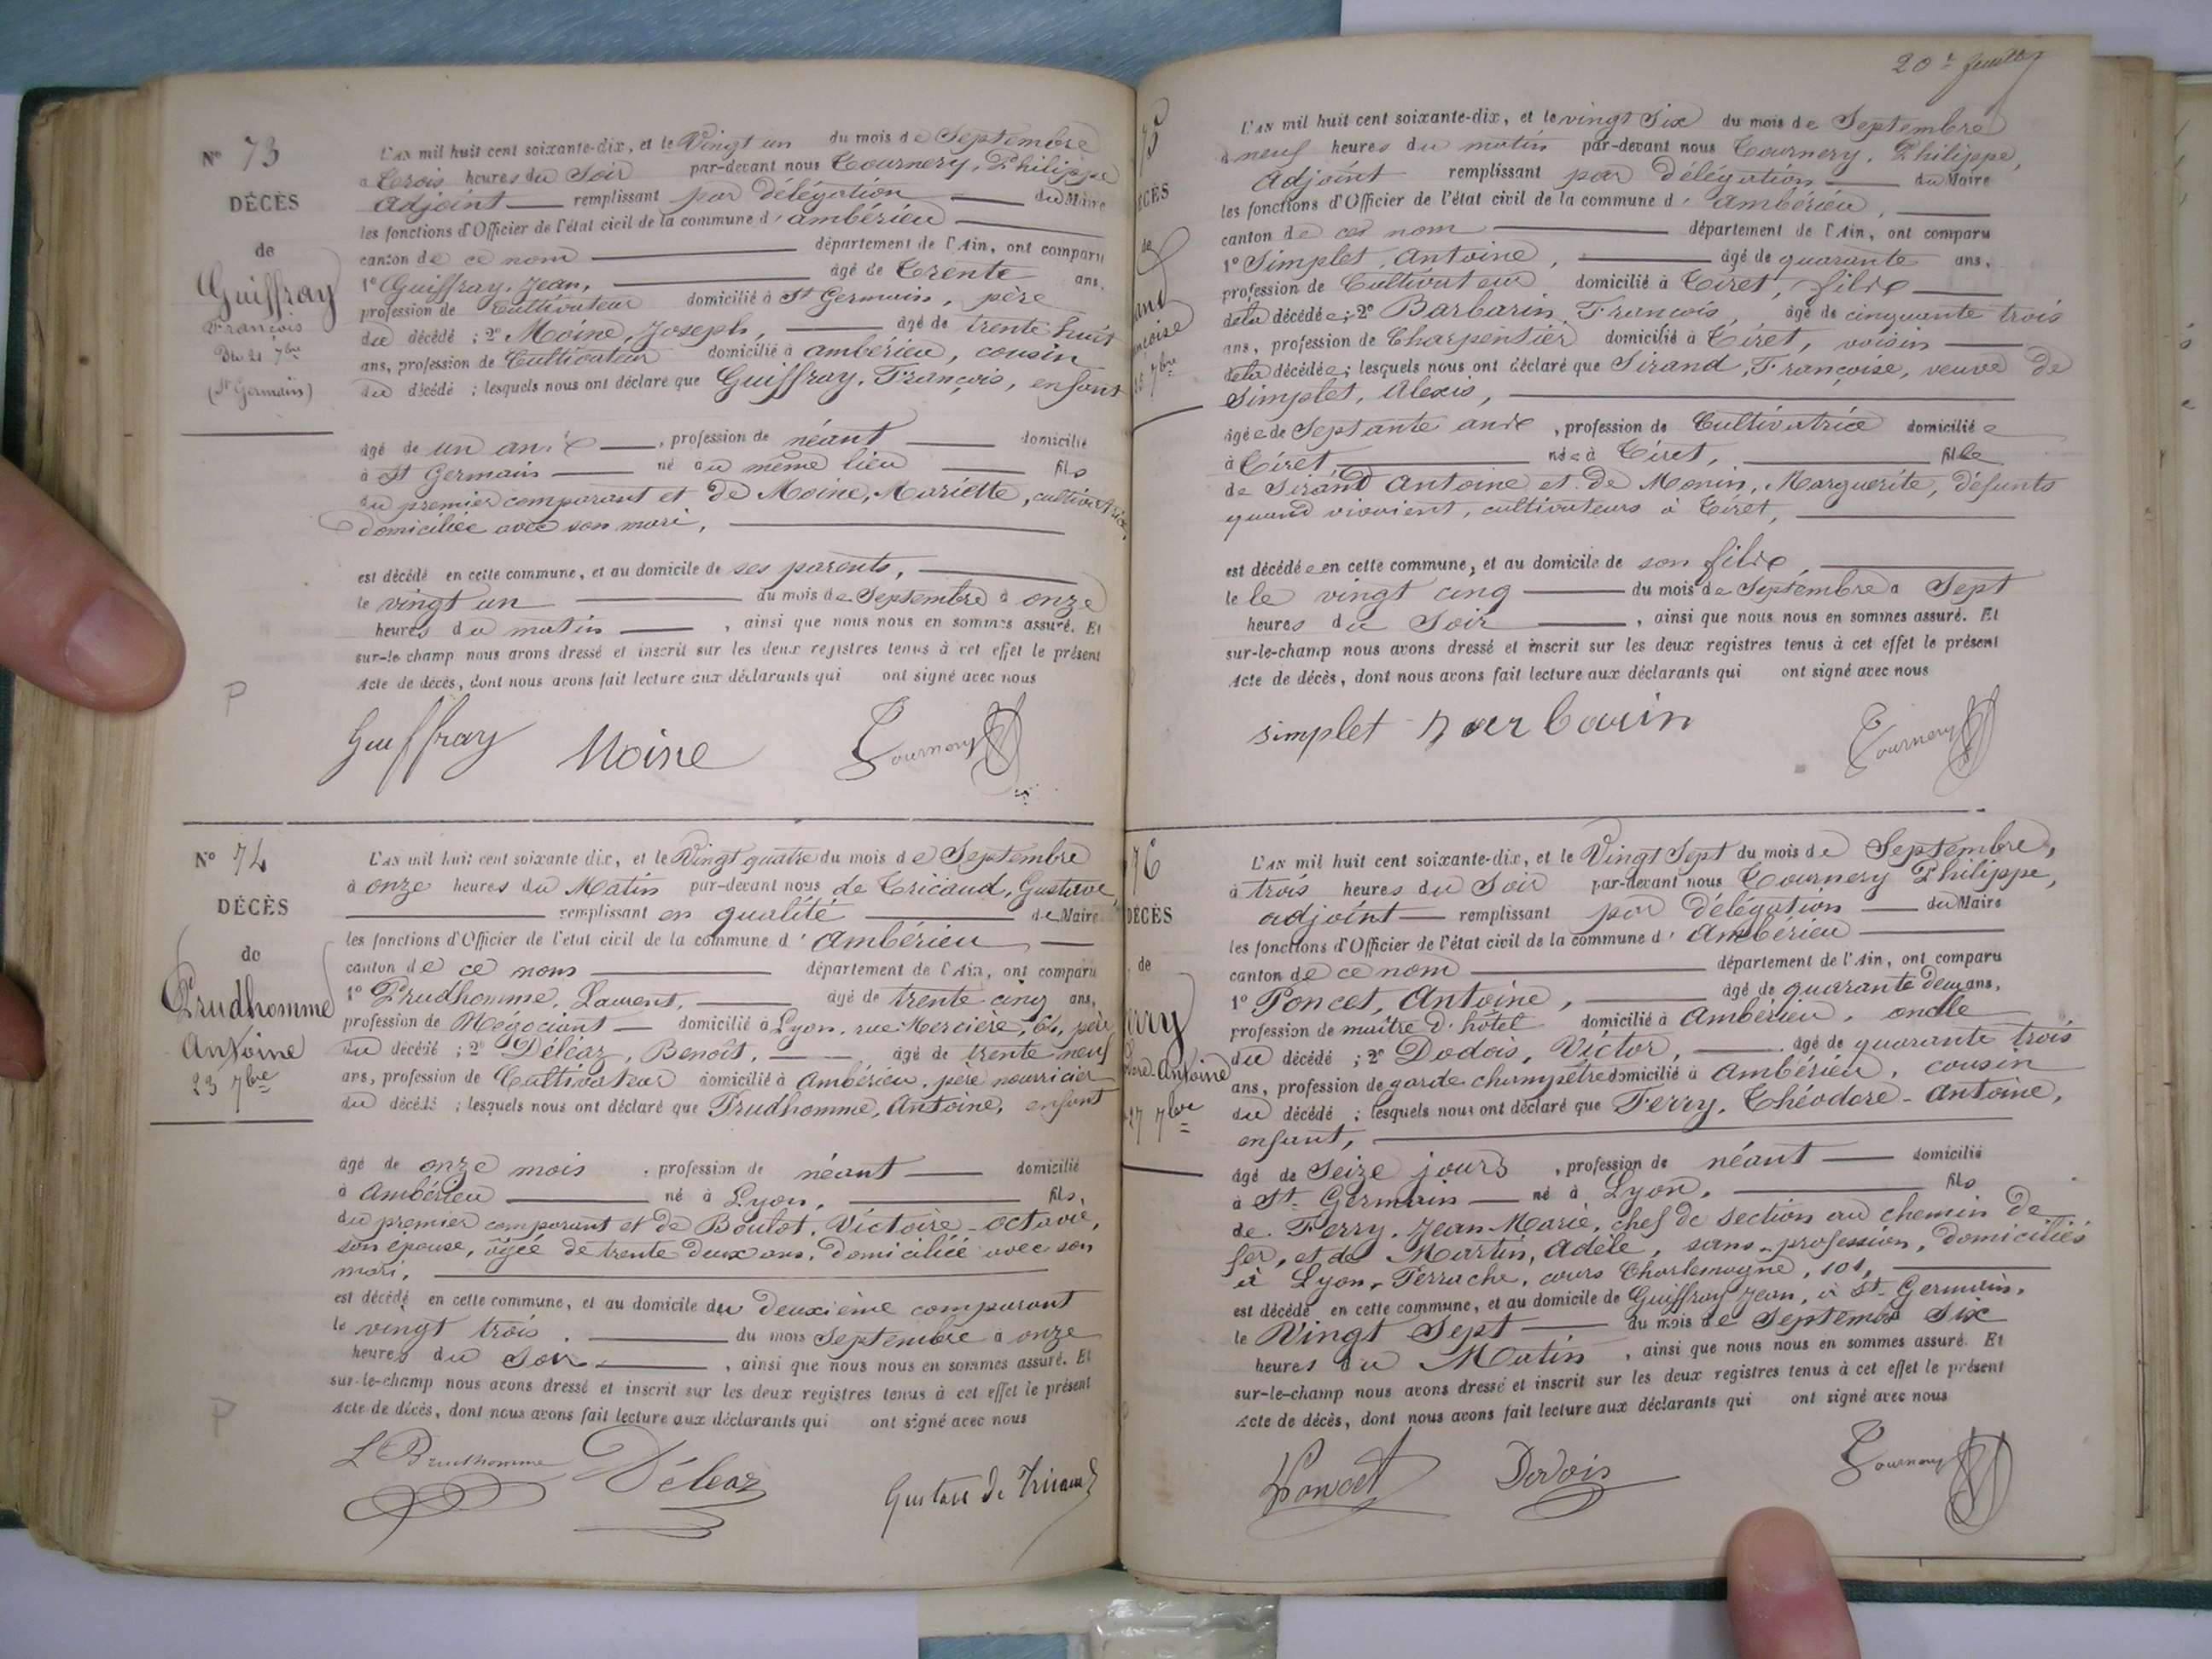 N° 73
DÉCÈS
de
Guiffray
François
Du 21 7bre
(St Germain)
L'AN mil huit cent soixante-dix, et le Vingt un du mois de Septembre
à trois heures du Soir par-devant nous Tournery, Philippe
adjoint remplissant par délégation du Maire
les fonctions d'Officier de l'état civil de la commune d'ambérieu
canton de ce nom département de l'Ain, ont comparu
1° Guiffray, Jean, âgé de trente ans,
profession de Cultivateur domicilié à St Germain, père
du décédé ; 2° Moine, Joseph, âgé de trente huit
ans, profession de Cultivateur domicilié à ambérieu, cousin
du décédé ; lesquels nous ont déclaré que Guiffray, François, enfant
âgé de un an , profession de néant domicilié
à St Germain né au même lieu fils
du premier comparant et de Moine, Mariette, cultivatrice,
domiciliée avec son mari,
est décédé en cette commune, et au domicile de ses parents,
le vingt un du mois de Septembre à onze
heures du matin , ainsi que nous nous en sommes assuré. Et
sur-le champ nous avons dressé et inscrit sur les deux registres tenus à cet effet le présent
Acte de décès, dont nous avons fait lecture aux déclarants qui ont signé avec nous
P
Guiffray Moine Tournery
N° 74
DÉCÈS
de
Prudhomme
Antoine
23 7bre
L'AN mil huit cent soixante dix, et le Vingt quatre du mois de Septembre
à onze heures du Matin par-devant nous de Tricaud, Gustave,
remplissant en qualité de Maire
les fonctions d'Officier de l'état civil de la commune d'ambérieu
canton de ce nom département de l'Ain, ont comparu
1° Prudhomme, Laurent, âgé de trente cinq ans,
profession de Négociant domicilié à Lyon, rue Mercière, 64, père
du décédé ; 2° Déléaz, Benoît, âgé de trente neuf
ans, profession de Cultivateur domicilié à Ambérieu, père nourricier
du décédé ; lesquels nous ont déclaré que Prudhomme, Antoine, enfant
âgé de onze mois , profession de néant domicilié
à Ambérieu né à Lyon, fils,
du premier comparant et de Boulot, Victoire-octavie,
son épouse, âgée de trente deux ans, domiciliée avec son
mari,
est décédé en cette commune, et au domicile du deuxième comparant
le vingt trois du mois Septembre à onze
heures du Soir , ainsi que nous nous en sommes assuré. Et
sur-le-champ nous avons dressé et inscrit sur les deux registres tenus à cet effet le présent
Acte de décès, dont nous avons fait lecture aux déclarants qui ont signé avec nous
P
L Prudhomme Déleaz Gustave de Tricaud
20e feuillet
75
ÉCÈS
de
and
nçoise
25 7bre
L'AN mil huit cent soixante-dix, et le vingt Six du mois de Septembre
à neuf heures du matin par-devant nous Tournery, Philippe,
Adjoint remplissant par Délégation du Maire
les fonctions d'Officier de l'état civil de la commune d'Ambérieu,
canton de ce nom département de l'Ain, ont comparu
1° Simplet, Antoine, âgé de quarante ans,
profession de Cultivateur domicilié à Tiret, fils
de la décédée ; 2° Barbarin, François, âgé de cinquante trois
ans, profession de Charpentier domicilié à Tiret, voisin
de la décédée ; lesquels nous ont déclaré que Sirand, Françoise, veuve de
Simplet, Alexis,
âgée de Septante ans , profession de Cultivatrice domiciliée
à Tiret, née à Tiret, fille
de Sirand Antoine et de Monin, Marguerite, défunts
quand vivaient, cultivateurs à Tiret,
est décédée en cette commune, et au domicile de son fils,
le le vingt cinq du mois de Septembre à Sept
heures du Soir , ainsi que nous nous en sommes assuré. Et
sur-le-champ nous avons dressé et inscrit sur les deux registres tenus à cet effet le présent
Acte de décès, dont nous avons fait lecture aux déclarants qui ont signé avec nous
simplet barbarin Tournery
76
DÉCÈS
de
erry
dore-Antoine
27 7bre
L'AN mil huit cent soixante-dix, et le Vingt Sept du mois de Septembre,
à trois heures du Soir par-devant nous Tournery Philippe,
adjoint remplissant par Délégation du Maire
les fonctions d'Officier de l'état civil de la commune d'Ambérieu
canton de ce nom département de l'Ain, ont comparu
1° Poncet, Antoine, âgé de quarante deux ans,
profession de maître d'hôtel domicilié à Ambérieu, oncle
du décédé ; 2° Dodois, Victor, âgé de quarante trois
ans, profession de garde champêtre domicilié à Ambérieu, cousin
du décédé ; lesquels nous ont déclaré que Ferry, Théodore-Antoine,
enfant,
âgé de Seize jours , profession de néant domicilié
à St Germain né à Lyon, fils
de Ferry, Jean Marie, chef de section au chemin de
fer, et de Martin, Adèle, sans profession, domiciliés
à Lyon-Perrache, cours Charlemagne, 101,
est décédé en cette commune, et au domicile de Guiffray Jean, à St Germain,
le Vingt Sept du mois de Septembre Six
heures du Matin , ainsi que nous nous en sommes assuré. Et
sur-le-champ nous avons dressé et inscrit sur les deux registres tenus à cet effet le présent
Acte de décès, dont nous avons fait lecture aux déclarants qui ont signé avec nous
Poncet Dodois Tournery